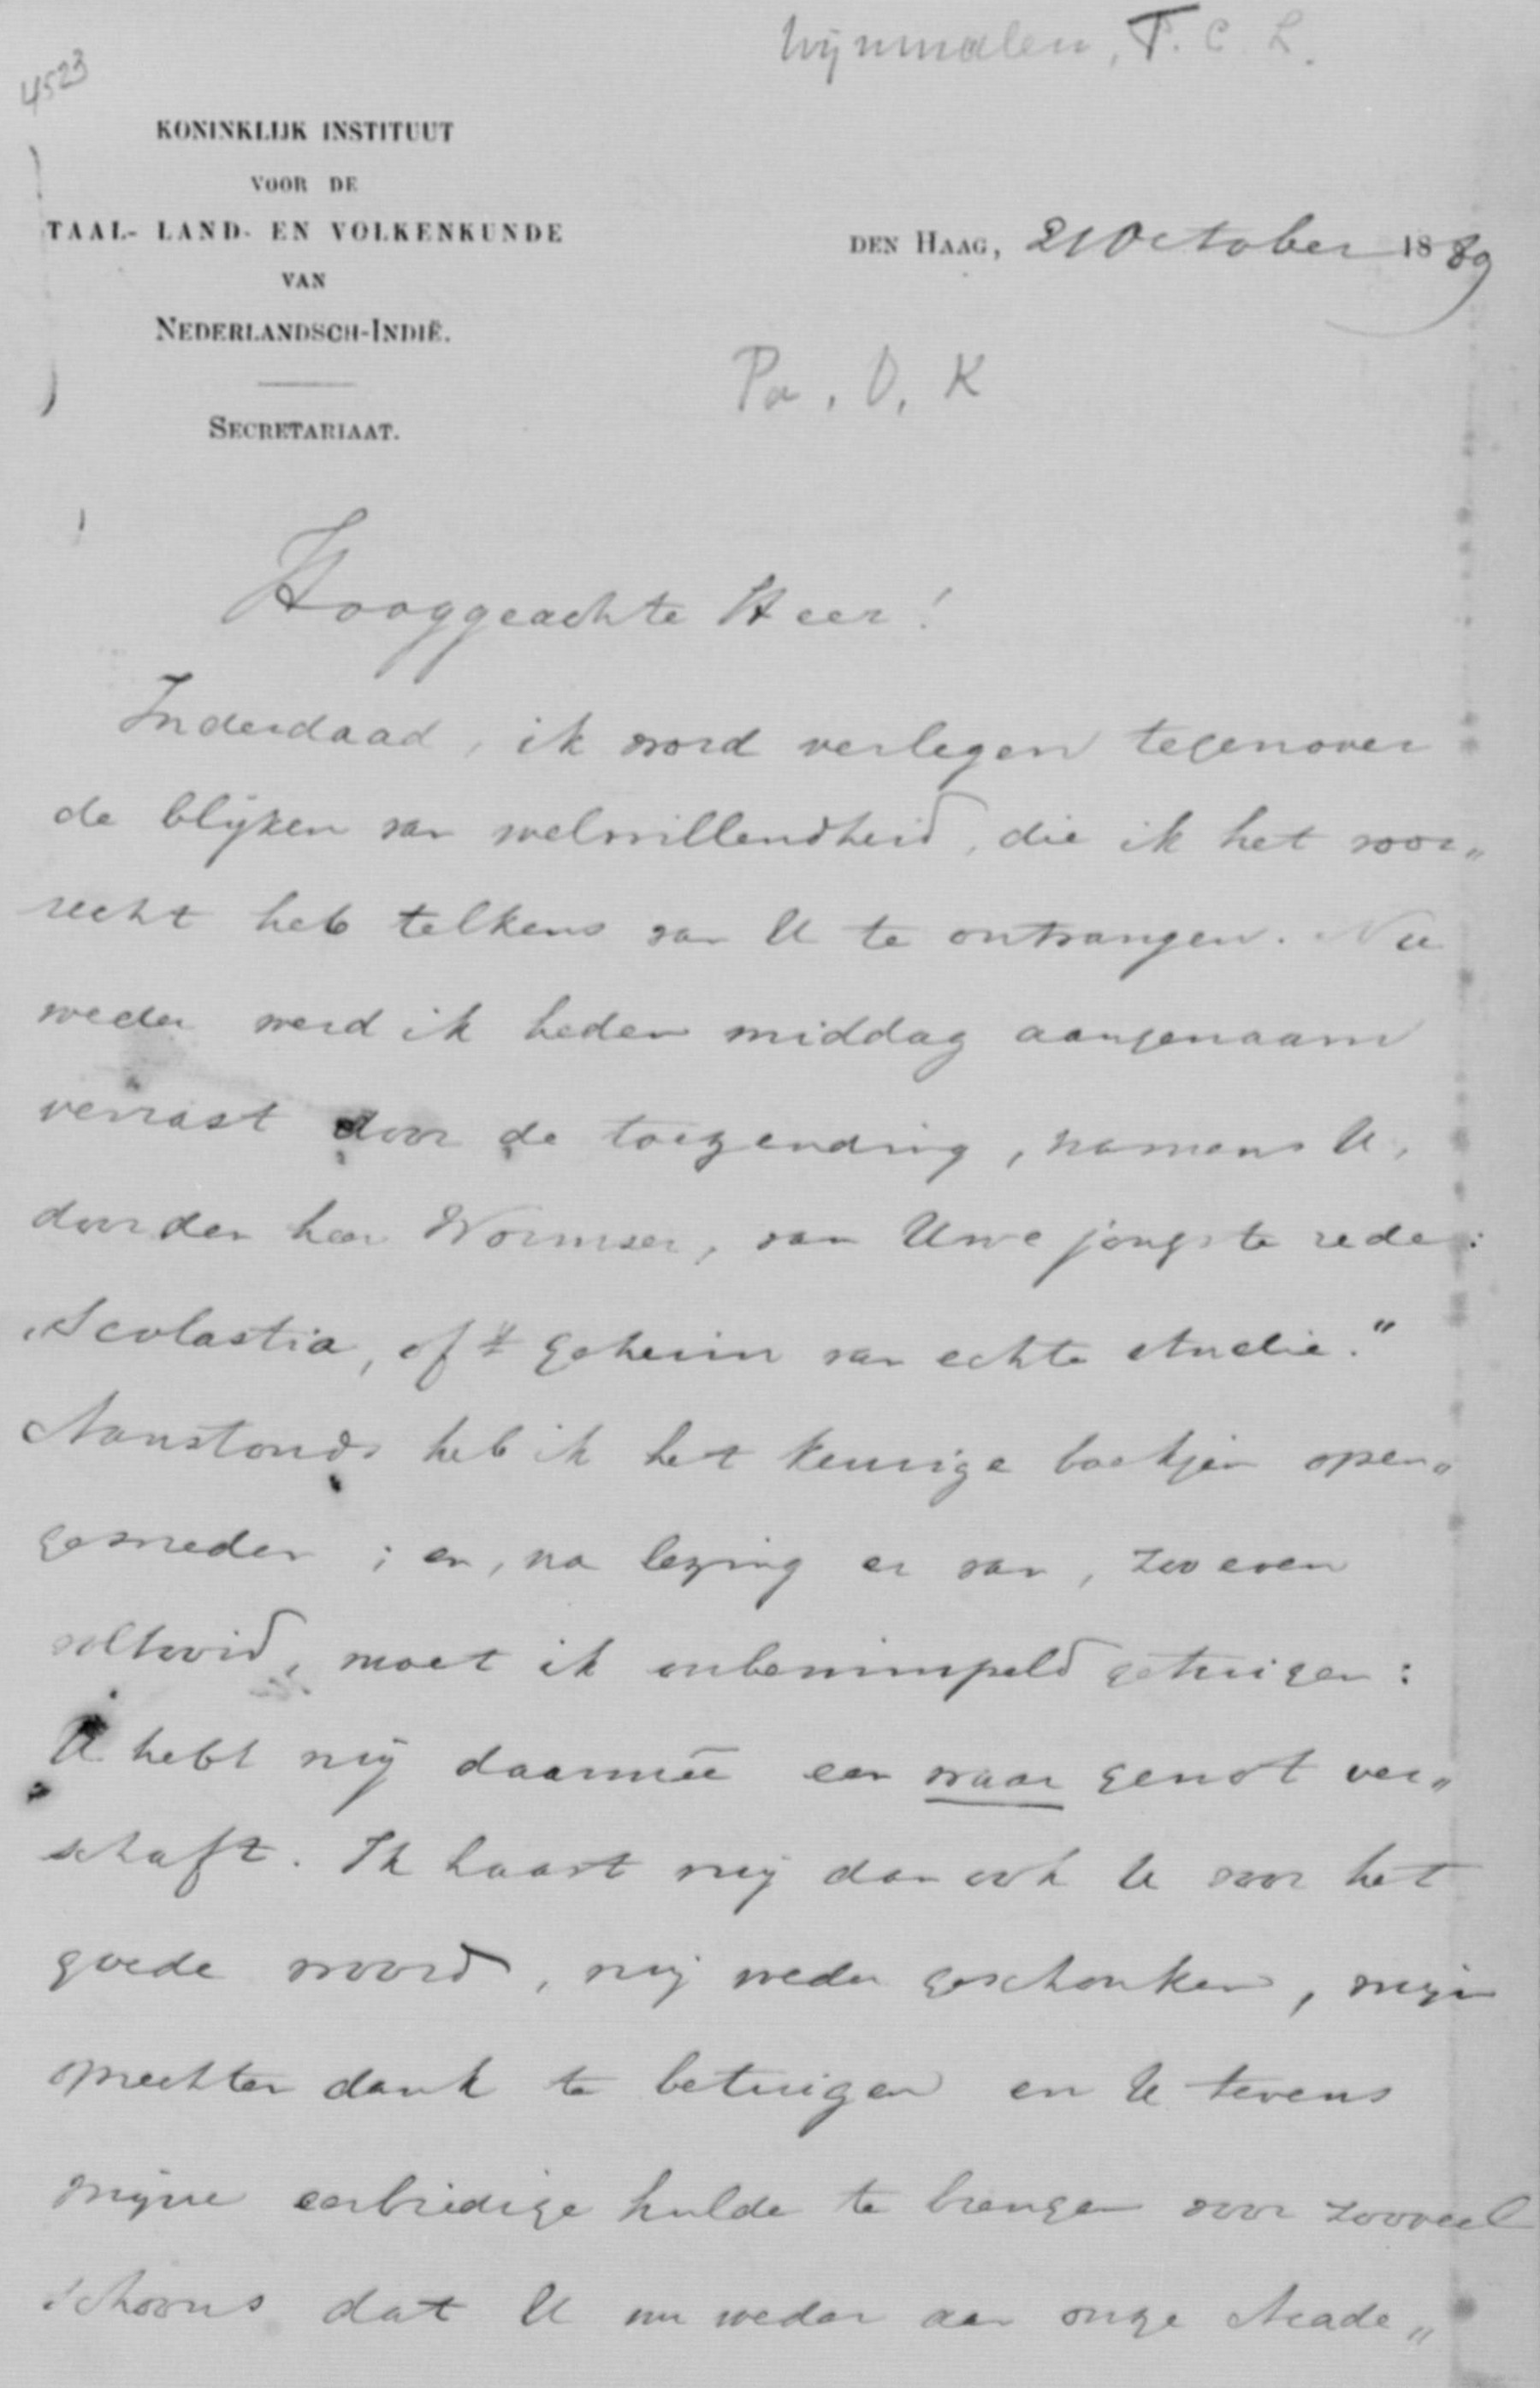 Wijnmalen, T. C. L.
4523
KONINKLIJK INSTITUUT
VOOR DE
TAAL- LAND- EN VOLKENKUNDE
VAN
NEDERLANDSCH-INDIË.
SECRETARIAAT.
DEN HAAG, 21 October 1889
Pa. D. K
Hooggeachte Heer!
Inderdaad, ik word verlegen tegenover
de blijken van welwillendheid, die ik het voor„
recht heb telkens van U te ontvangen. Nu
weder werd ik heden middag aangenaam
verrast door de toezending, namens U,
door den heer Wormser, van Uwe jongste rede:
„Scolastica, of 't geheim van echte studie."
Aanstonds heb ik het keurige boekjen open„
gesneden; en, na lezing er van, zoo even
voltooid, moet ik onbewimpeld getuigen:
U hebt mij daarmeê een waar genot ver„
schaft. Ik haast mij dan ook U voor het
goede woord, mij weder geschonken, mijn
oprechten dank te betuigen en U tevens
mijne eerbiedige hulde te brengen voor zooveel
schoons dat U nu weder aan onze Acade„